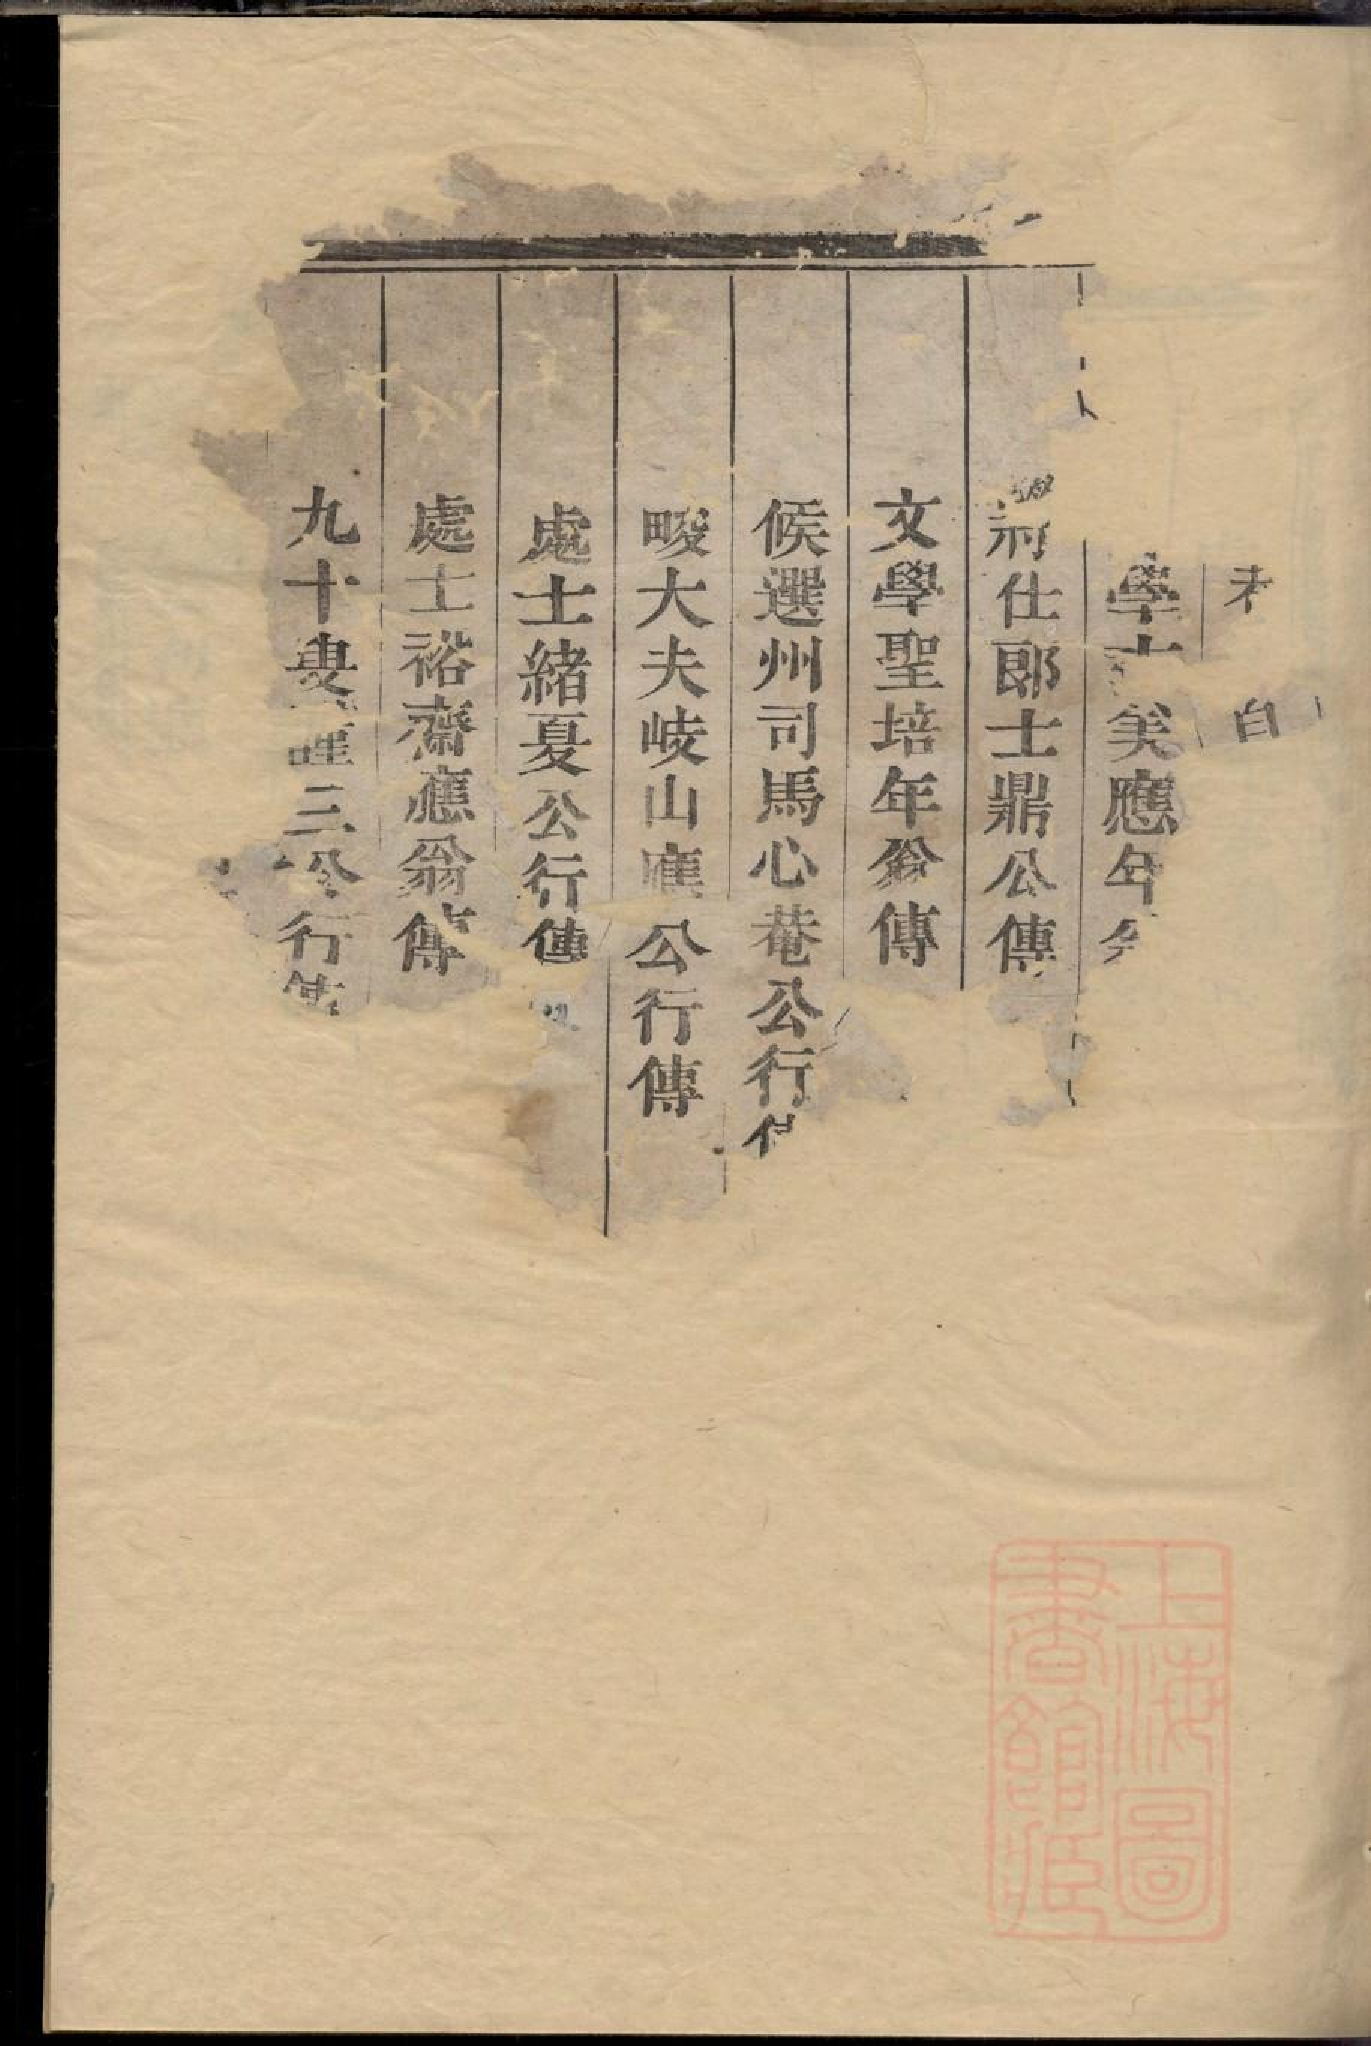 白
學 美應年
仕郎士鼎公傳
文學聖培年翁傳
候選州司馬心菴公行傳
畯大夫岐山應公行傳
處士緒夏公行傳
處士裕齋應翁傳
九十叟 三公行傳
上海圖書館藏